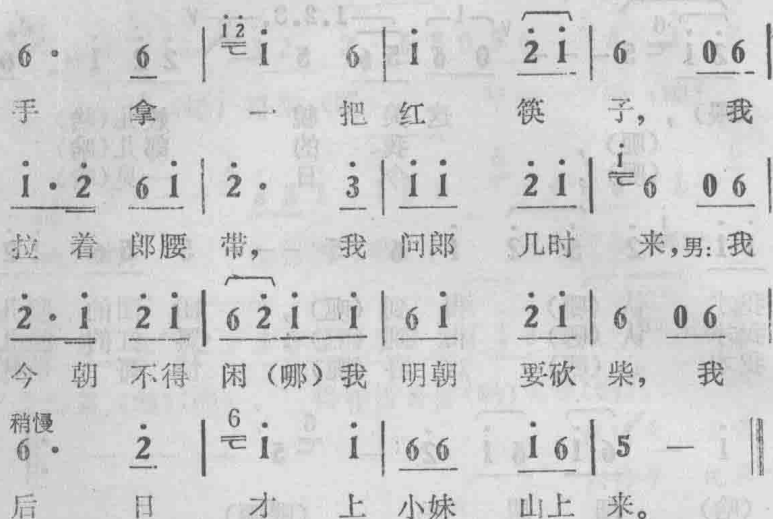 6· 6 | i̇ 2̇ i̇ 6 | i̇ 2̇ i̇ | 6 0 6 |
手 拿 一 把 红 筷 子, 我
i̇·2̇ 6 i̇ | 2̇· 3̇ | i̇ i̇ 2̇ i̇ | i̇ 6 0 6 |
拉 着 郎腰 带, 我 问郎 几时 来,男:我
2̇·i̇ 2̇ i̇ | 6 2̇ i̇ i̇ | 6 i̇ 2̇ i̇ | 6 0 6 |
今 朝 不得 闲(哪)我 明朝 要砍 柴, 我
稍慢
6· 2̇ | 6 i̇ i̇ | 6 6 i̇ 6 | 5 — ‖
后 日 才 上 小妹 山上 来。